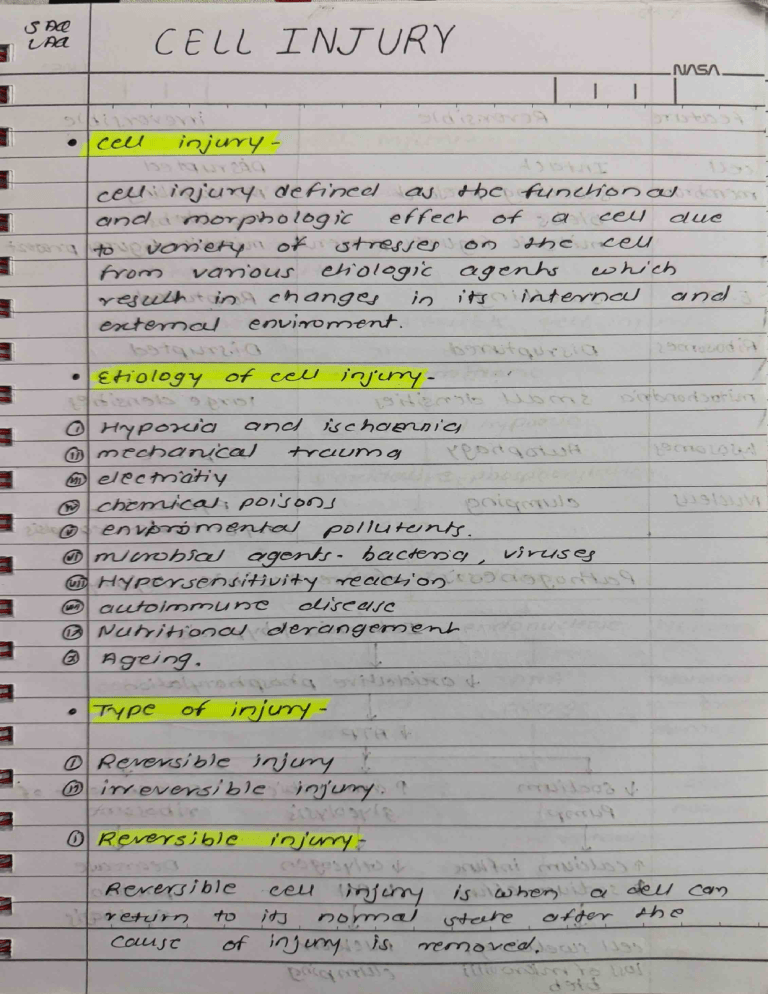 SAQ
LAQ
CELL INJURY
NASA
• cell injury-
cell injury defined as the functional
and morphologic effect of a cell due
to variety of stresses on the cell
from various etiologic agents which
result in changes in its internal and
external enviroment.
• Etiology of cell injury-
(i) Hypoxia and ischaemia
(ii) mechanical trauma
(iii) electriatiy
(iv) chemical, poisons
(v) enviromental pollutents.
(vi) microbial agents- bacteria, viruses
(vii) Hypersensitivity reaction
(viii) autoimmune disease
(ix) Nutritional derangement
(x) Ageing.
• Type of injury-
(i) Reversible injury
(ii) irreversible injury.
(i) Reversible injury-
Reversible cell injury is when a cell can
return to its normal state after the
cause of injury is removed.